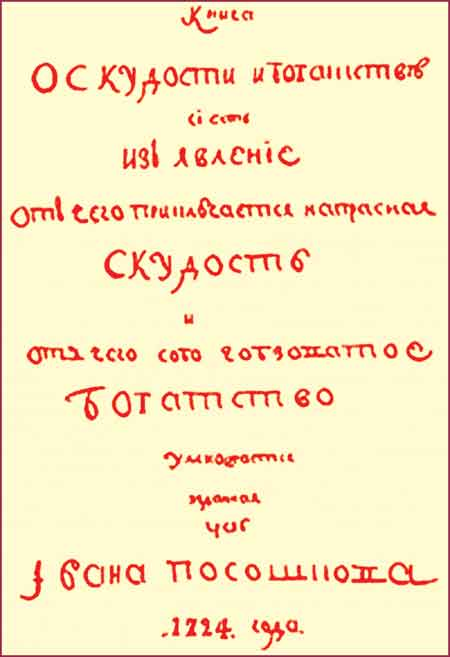 Книга
О СКУДОСТИ И БОГАТСТВѢ
сі есть
ИЗЪЯВЛЕНІЕ
отъ чего приключается напрасная
СКУДОСТЬ
и
отъ чего гобзоватое
БОГАТСТВО
умножается
Ивана посошкова
.1724. года.